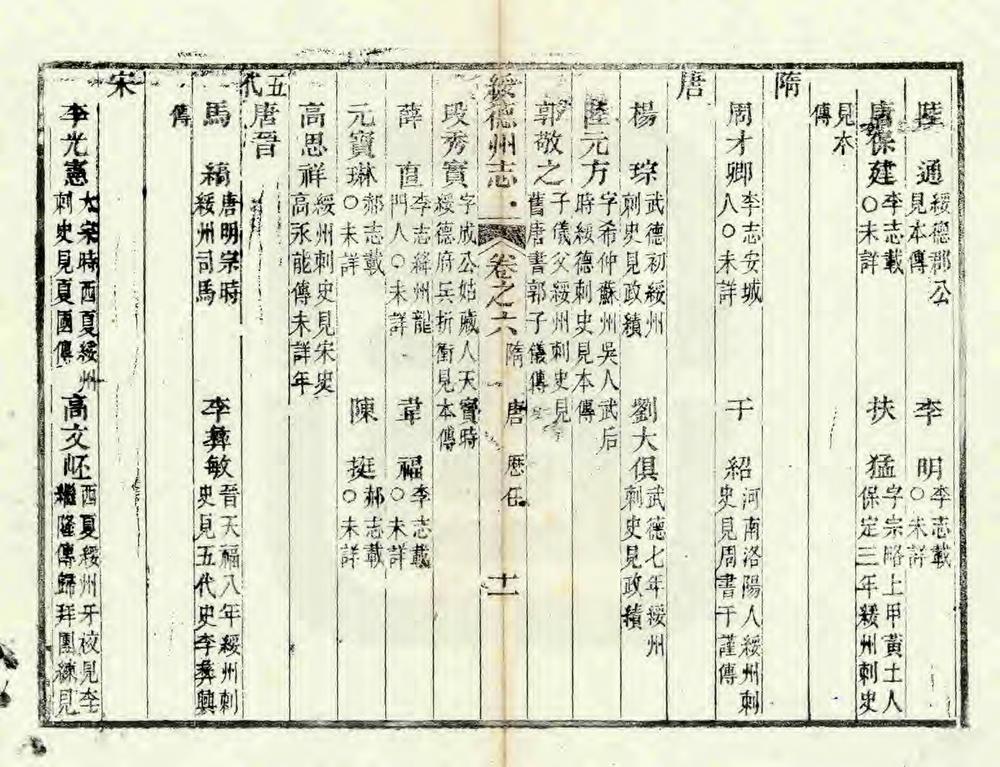 陸通綏德郡公見本傳 李明李志載○未詳
唐保建李志載○未詳 扶猛字宗略上甲黃土人保定三年綏州刺史
見本傳
隋
周才卿李志安城人○未詳 于紹河南洛陽人綏州刺史見周書于謹傳
唐
楊琮武德初綏州刺史見政績 劉大俱武德七年綏州刺史見政績
陸元方字希仲蘇州吳人武后時綏德刺史見本傳
郭敬之子儀父綏州刺史見舊唐書郭子儀傳
綏德州志 卷之六 隋 唐 歷任 十一
段秀實字成公姑臧人天寶時綏德府兵折衝見本傳
薛直李志絳州龍門人○未詳 韋福李志載○未詳
元寶琳郝志載○未詳 陳挺郝志載○未詳
高思祥綏州刺史見宋史高永能傳未詳年
五代
唐晉
馬縞唐明宗時綏州司馬 李彝敏晉天福八年綏州刺史見五代史李彝興
傳
宋
李光憲太宗時西夏綏州刺史見夏國傳 高文岯西夏綏州牙校見李繼隆傳歸拜團練見